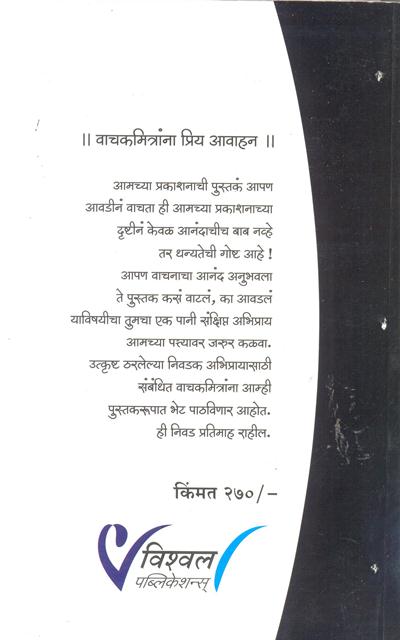 || वाचकमित्रांना प्रिय आवाहन ||
आमच्या प्रकाशनाची पुस्तकं आपण
आवडीनं वाचता ही आमच्या प्रकाशनाच्या
दृष्टीनं केवळ आनंदाचीच बाब नव्हे
तर धन्यतेची गोष्ट आहे !
आपण वाचनाचा आनंद अनुभवला
ते पुस्तक कसं वाटलं, का आवडलं
याविषयीचा तुमचा एक पानी संक्षिप्त अभिप्राय
आमच्या पत्त्यावर जरुर कळवा.
उत्कृष्ट ठरलेल्या निवडक अभिप्रायासाठी
संबंधित वाचकमित्रांना आम्ही
पुस्तकरूपात भेट पाठविणार आहोत.
ही निवड प्रतिमाह राहील.
किंमत २७०/–
विश्वल
पब्लिकेशन्स्